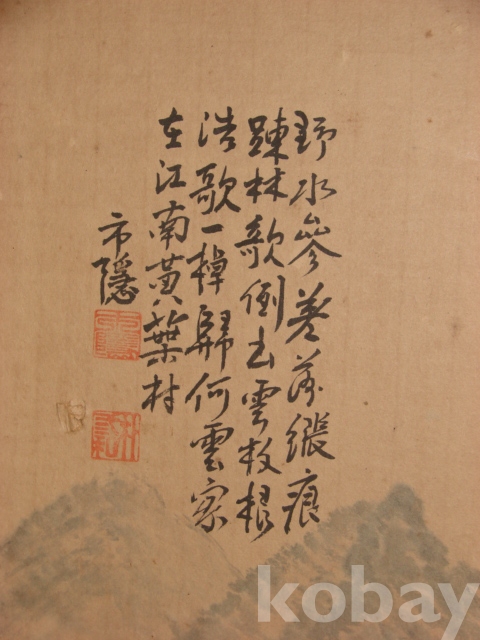 野水參差落漲痕
踈林欹倒出霜根
浩歌一棹歸何處家
在江南黃葉村
市隱
kobay